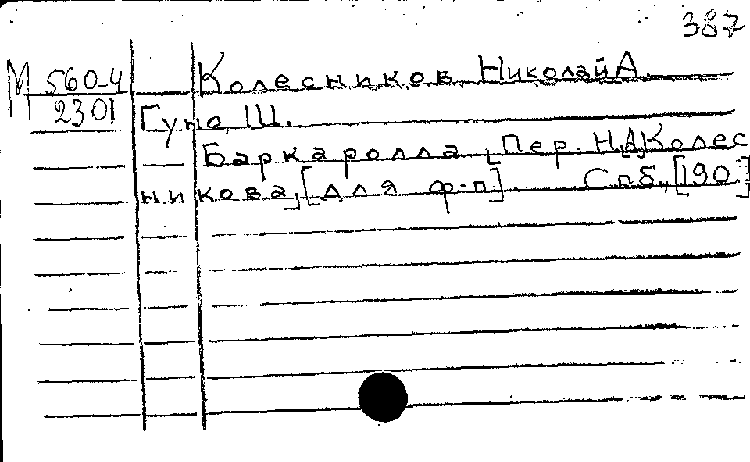 387
М 560-4 Колесников, Николай А.
2301 Гуно, Ш.
Баркаролла [Пер. Н.А. Колес
никова], [для ф-п] Спб., [190]